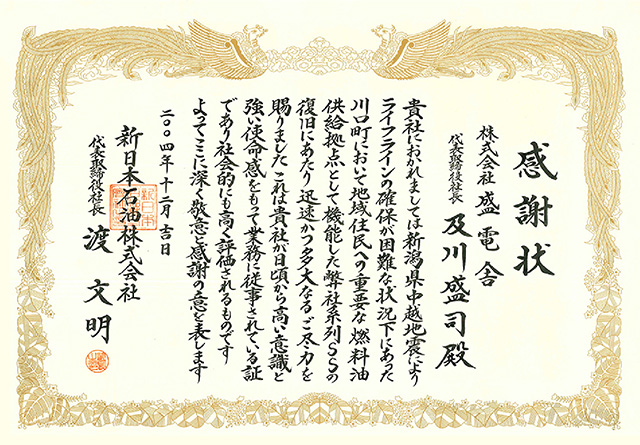 感謝状
株式会社 盛電舎
代表取締役社長 及川盛司殿
貴社におかれましては新潟県中越地震により
ライフラインの確保が困難な状況下にあった
川口町において地域住民への重要な燃料油
供給拠点として機能した弊社系列SSの
復旧にあたり迅速かつ多大なるご尽力を
賜りました これは貴社が日頃から高い意識と
強い使命感をもって業務に従事されている証
であり社会的にも高く評価されるものです
よってここに深く敬意と感謝の意を表します
二〇〇四年十二月吉日
新日本石油株式会社
代表取締役社長 渡文明